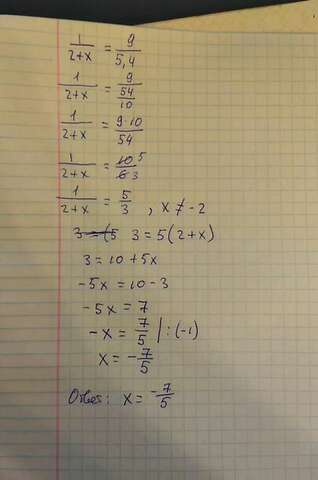 1/(2+x) = 9/5,4
1/(2+x) = 9/(54/10)
1/(2+x) = 9·10/54
1/(2+x) = 10 5/6 3
1/(2+x) = 5/3 , x ≠ -2
3 = (5 3 = 5(2+x)
3 = 10 + 5x
-5x = 10 - 3
-5x = 7
-x = 7/5 | : (-1)
x = -7/5
Ответ: x = -7/5